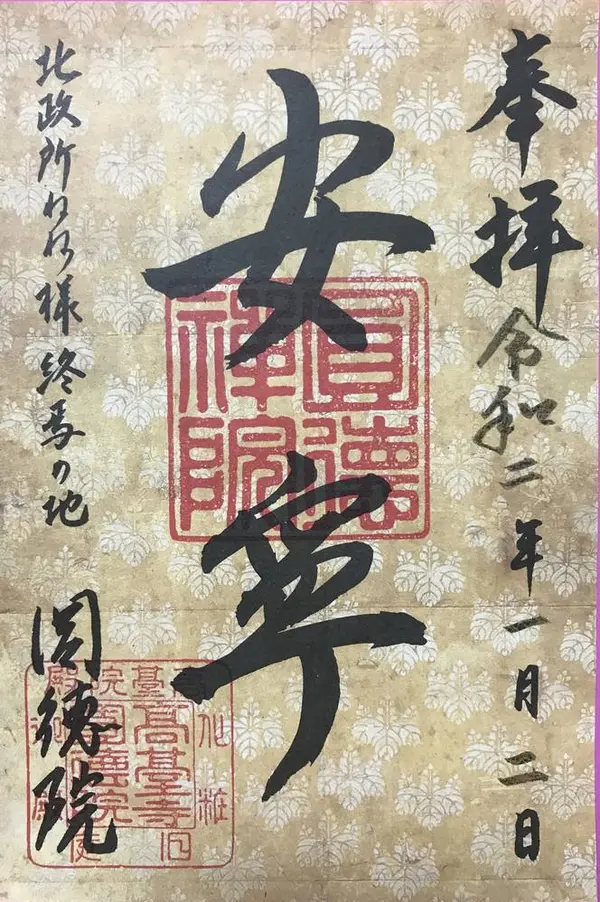 奉拝 令和二年一月二日
安寧
圓德禪院
北政所ねね様終焉の地
圓徳院
高臺寺